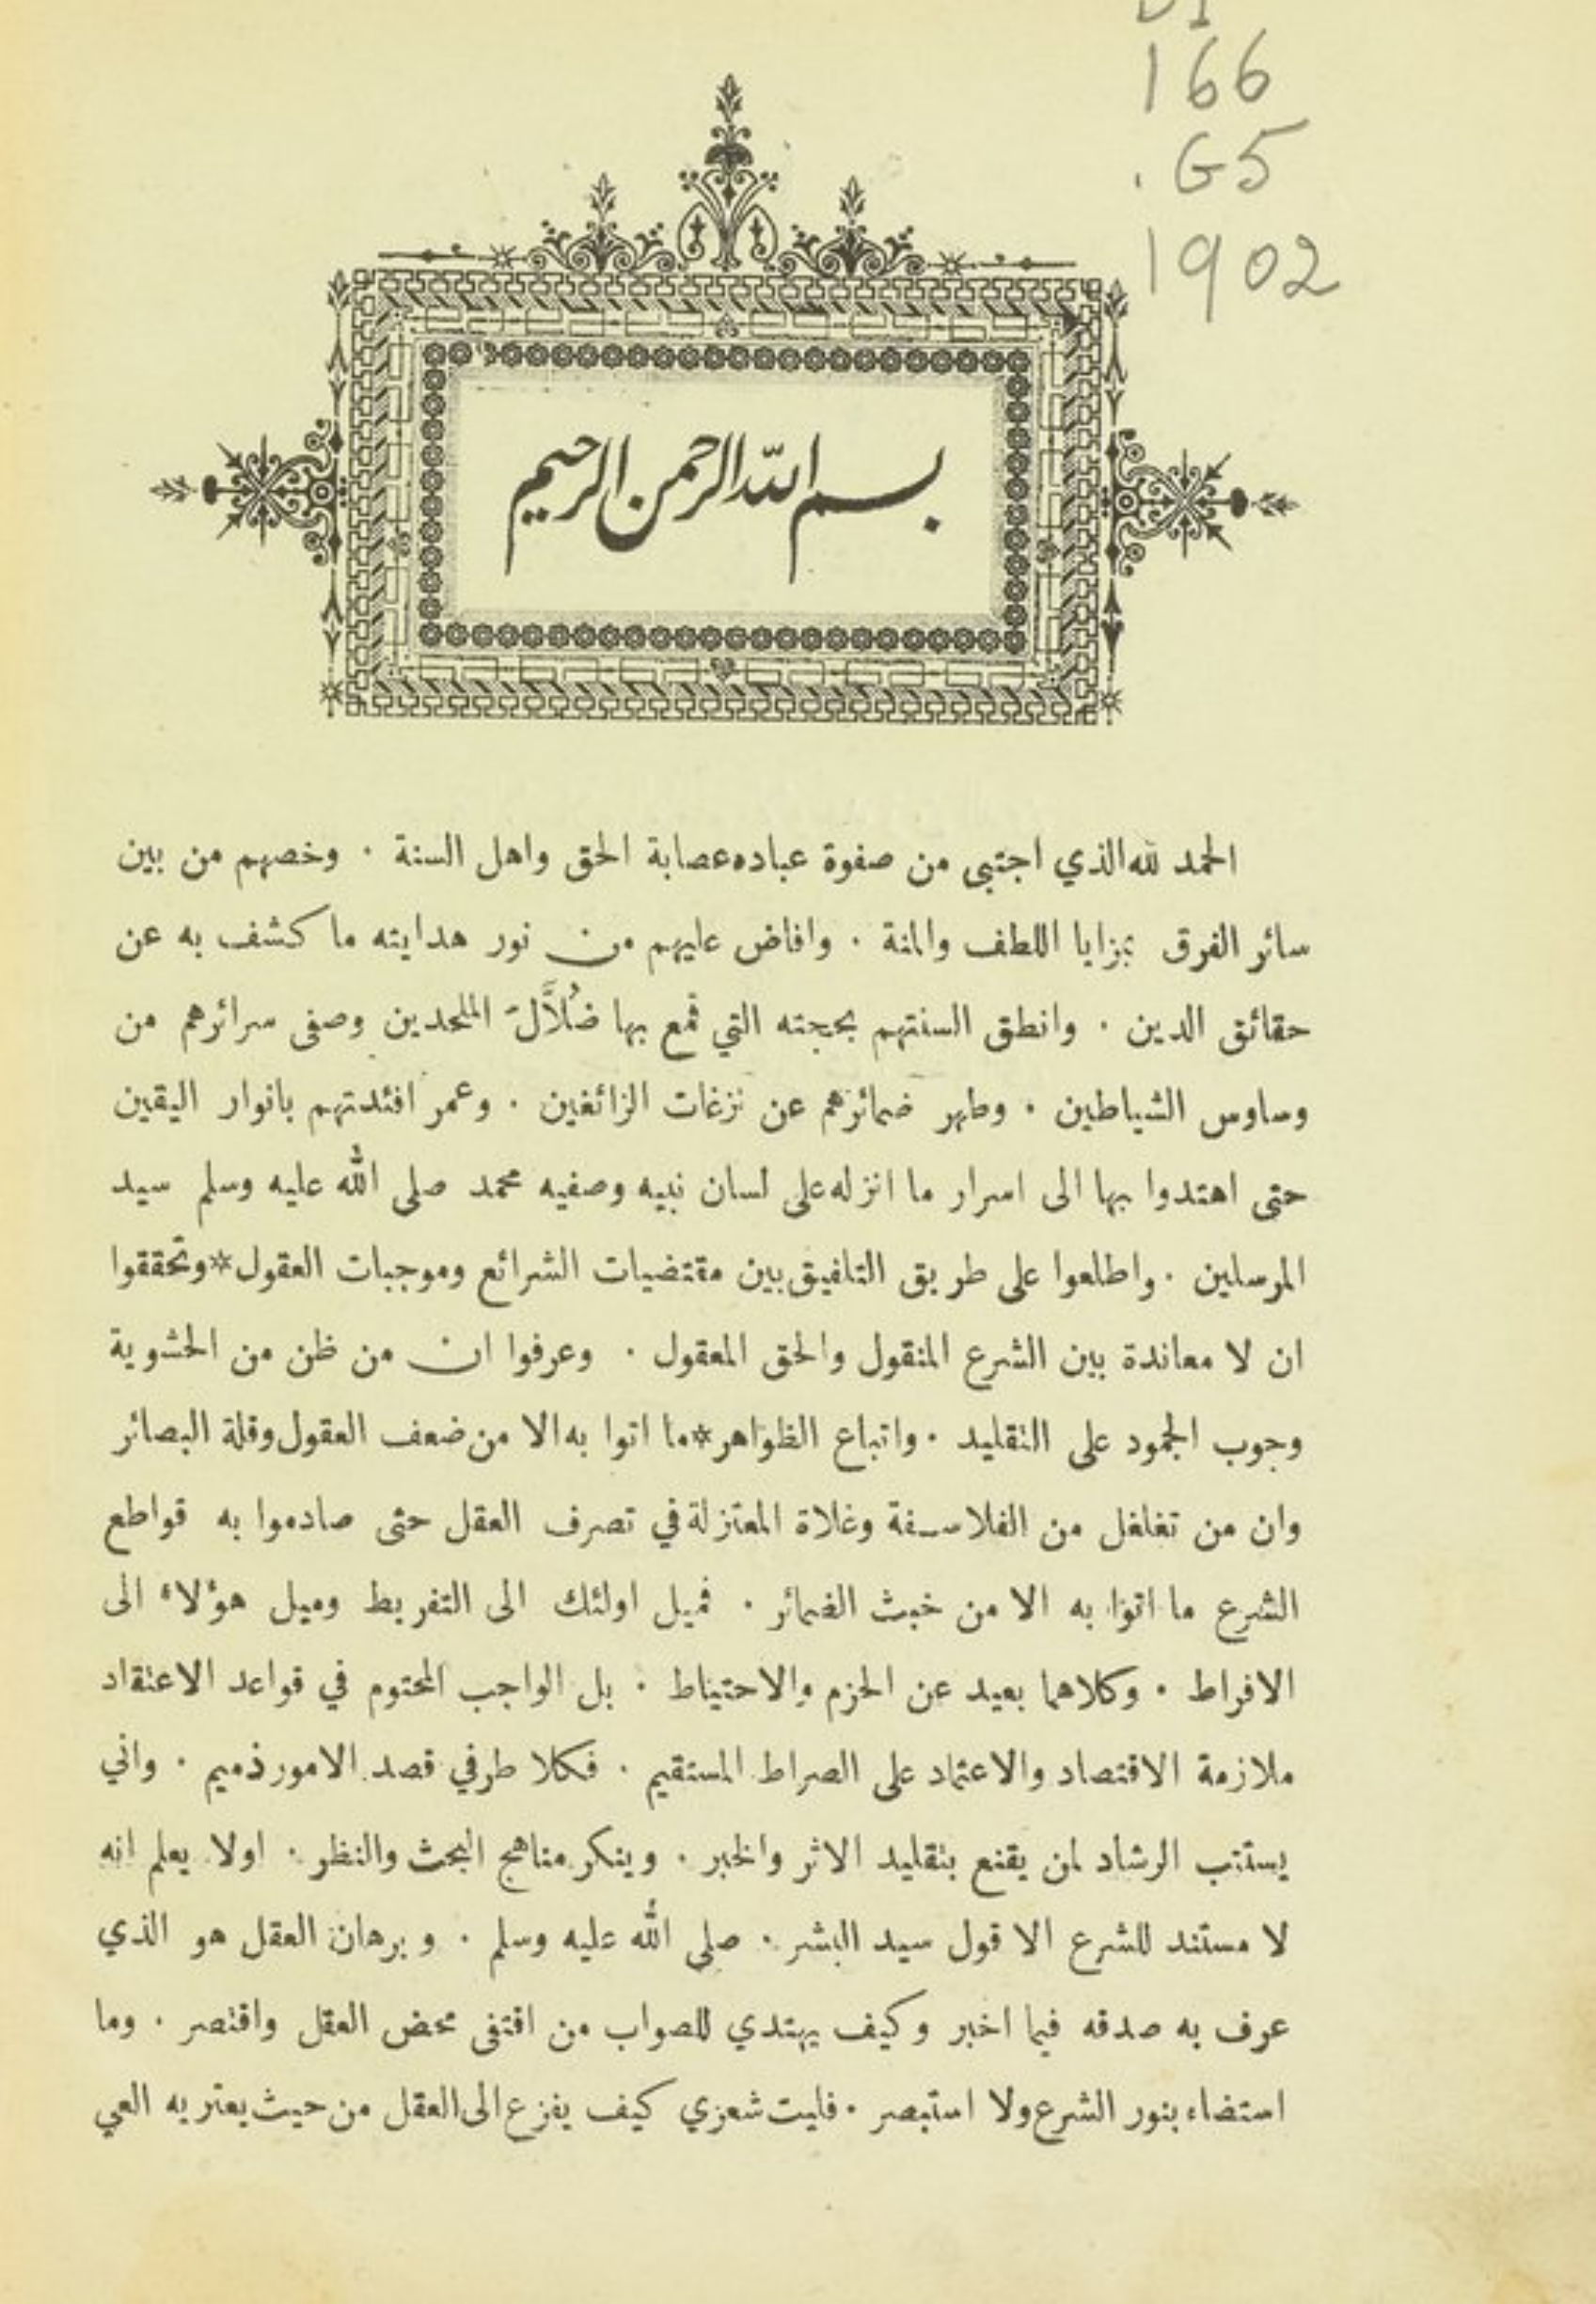 166
.G5
1902
بسم الله الرحمن الرحيم
الحمد لله الذي اجتبى من صفوة عباده عصابة الحق واهل السنة ٠ وخصهم من بين
سائر الفرق بمزايا اللطف والمنة ٠ وافاض عليهم من نور هدايته ما كشف به عن
حقائق الدين ٠ وانطق السنتهم بحجته التي قمع بها ضُلاَّلَ الملحدين وصفى سرائرهم من
وساوس الشياطين ٠ وطهر ضمائرهم عن نزغات الزائغين ٠ وعمر افئدتهم بانوار اليقين
حتى اهتدوا بها الى اسرار ما انزله على لسان نبيه وصفيه محمد صلى الله عليه وسلم سيد
المرسلين ٠ واطلعوا على طريق التلفيق بين مقتضيات الشرائع وموجبات العقول*وتحققوا
ان لا معاندة بين الشرع المنقول والحق المعقول ٠ وعرفوا ان من ظن من الحشوية
وجوب الجمود على التقليد ٠ واتباع الظواهر*ما اتوا به الا من ضعف العقول وقلة البصائر
وان من تغلغل من الفلاسفة وغلاة المعتزلة في تصرف العقل حتى صادموا به قواطع
الشرع ما اتوا به الا من خبث الضمائر ٠ فميل اولئك الى التفريط وميل هؤلاء الى
الافراط ٠ وكلاهما بعيد عن الحزم والاحتياط ٠ بل الواجب المحتوم في قواعد الاعتقاد
ملازمة الاقتصاد والاعتماد على الصراط المستقيم ٠ فكلا طرفي قصد الامور ذميم ٠ واني
يستتب الرشاد لمن يقنع بتقليد الاثر والخبر ٠ وينكر مناهج البحث والنظر ٠ اولا يعلم انه
لا مستند للشرع الا قول سيد البشر ٠ صلى الله عليه وسلم ٠ وبرهان العقل هو الذي
عرف به صدقه فيما اخبر وكيف يهتدي للصواب من اقتفى محض العقل واقتصر ٠ وما
استضاء بنور الشرع ولا استبصر ٠ فليت شعري كيف يفزع الى العقل من حيث يعتريه العي